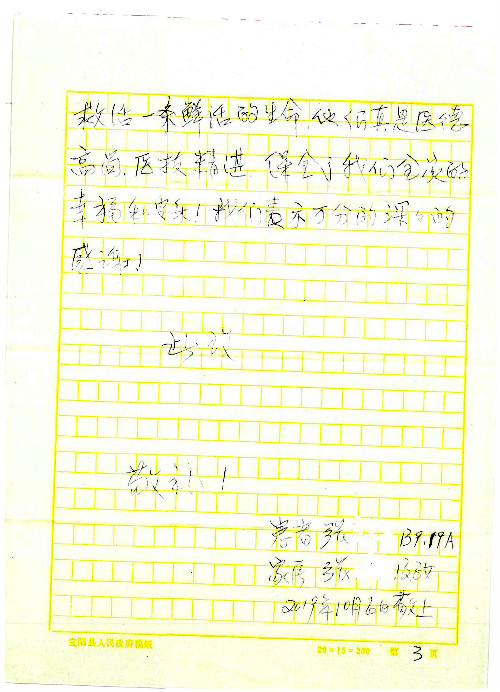 救活一条鲜活的生命，他们真是医德
高尚，医技精进，保全了我们全家的
幸福和安稳！我们表示万分的深深的
感谢！
此致
敬礼！
患者 张
家属 张
2019年10月6日敬上
宜阳县人民政府稿纸 20×15=300 第3页